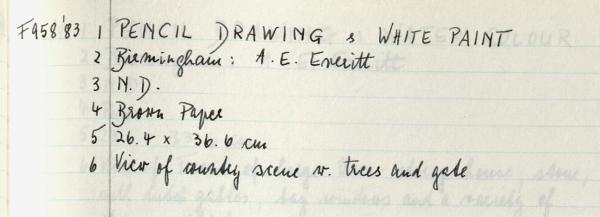 F958'83 1 PENCIL DRAWING & WHITE PAINT
2 Birmingham: A. E. Everitt
3 N.D.
4 Brown Paper
5 26.4 x 36.6 cm
6 View of country scene w. trees and gate